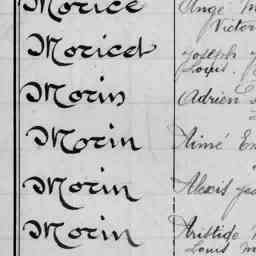 Morice Ange M
Victor
Moricet Joseph
Louis
Morin Adrien
Morin Aimé Em
Morin Alexis
Morin Aristide
Louis M